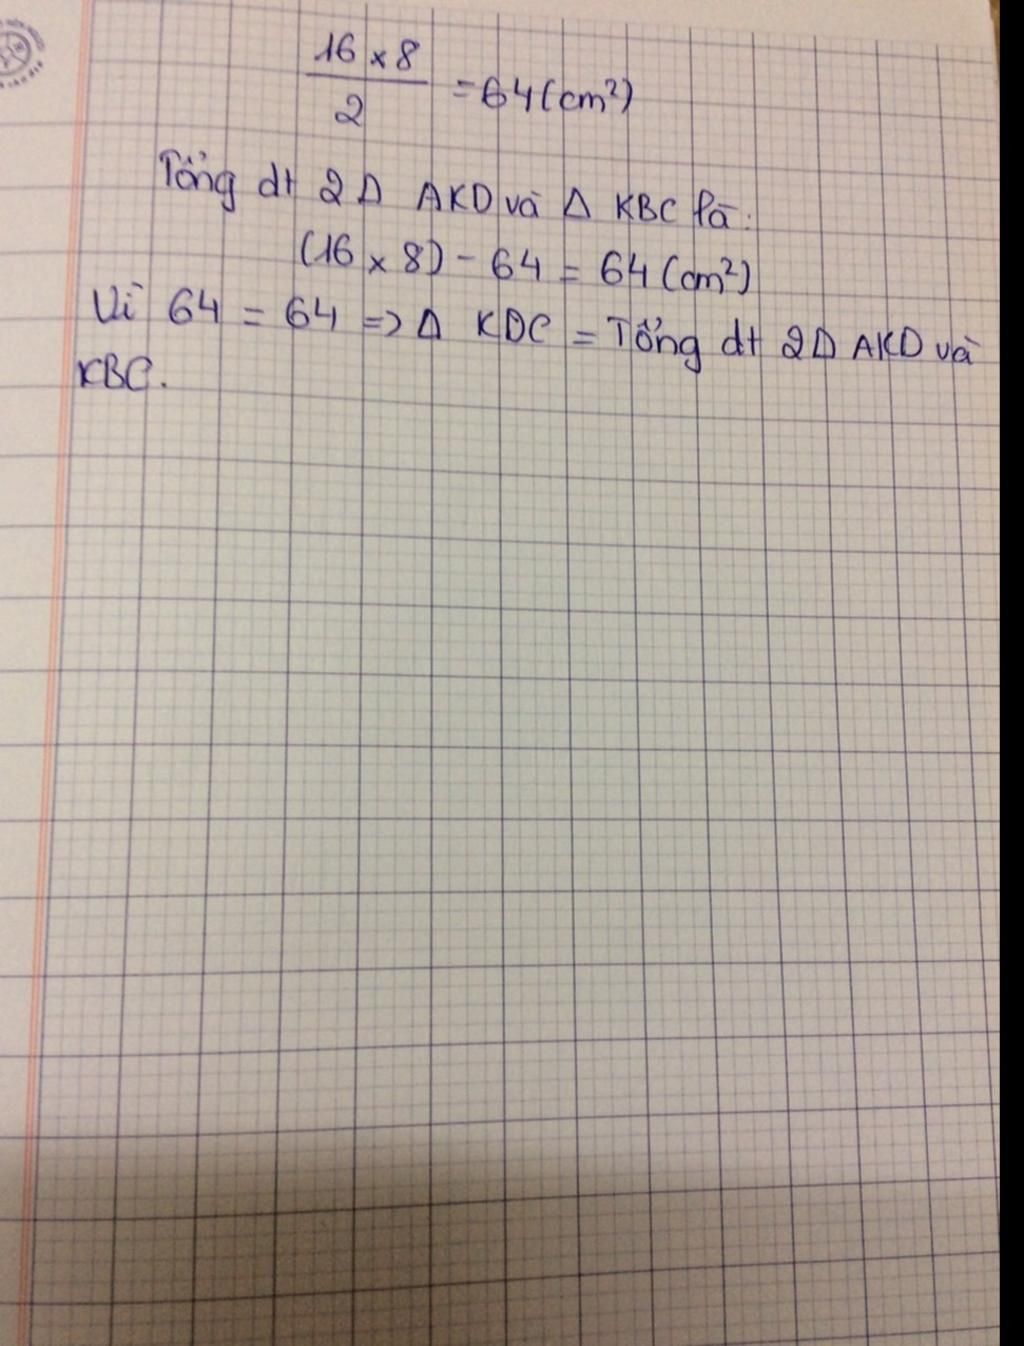 16 × 8
2
= 64 (cm²)
Tổng dt 2Δ AKD và Δ KBC là:
(16 × 8) - 64 = 64 (cm²)
Vì 64 = 64 => Δ KDC = Tổng dt 2Δ AKD và
KBC.